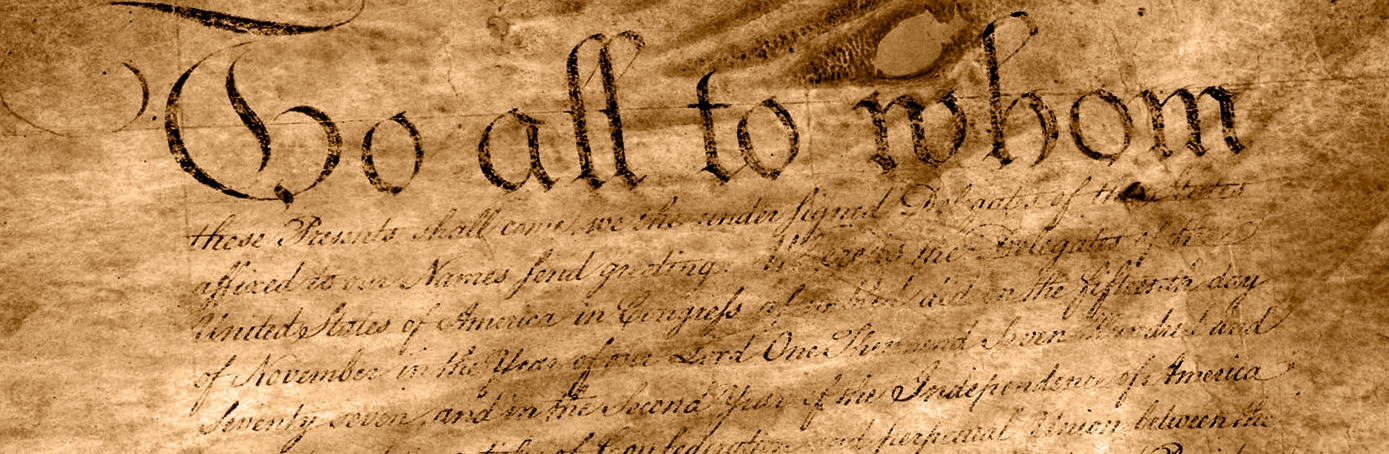 To all to whom
these Presents shall come, we the under signed Delegates of the States
affixed to our Names send greeting. Whereas the Delegates of the
United States of America in Congress assembled did on the fifteenth day
of November in the Year of our Lord One Thousand Seven Hundred and
Seventy seven, and in the Second Year of the Independence of America
of Confederation and perpetual Union between the